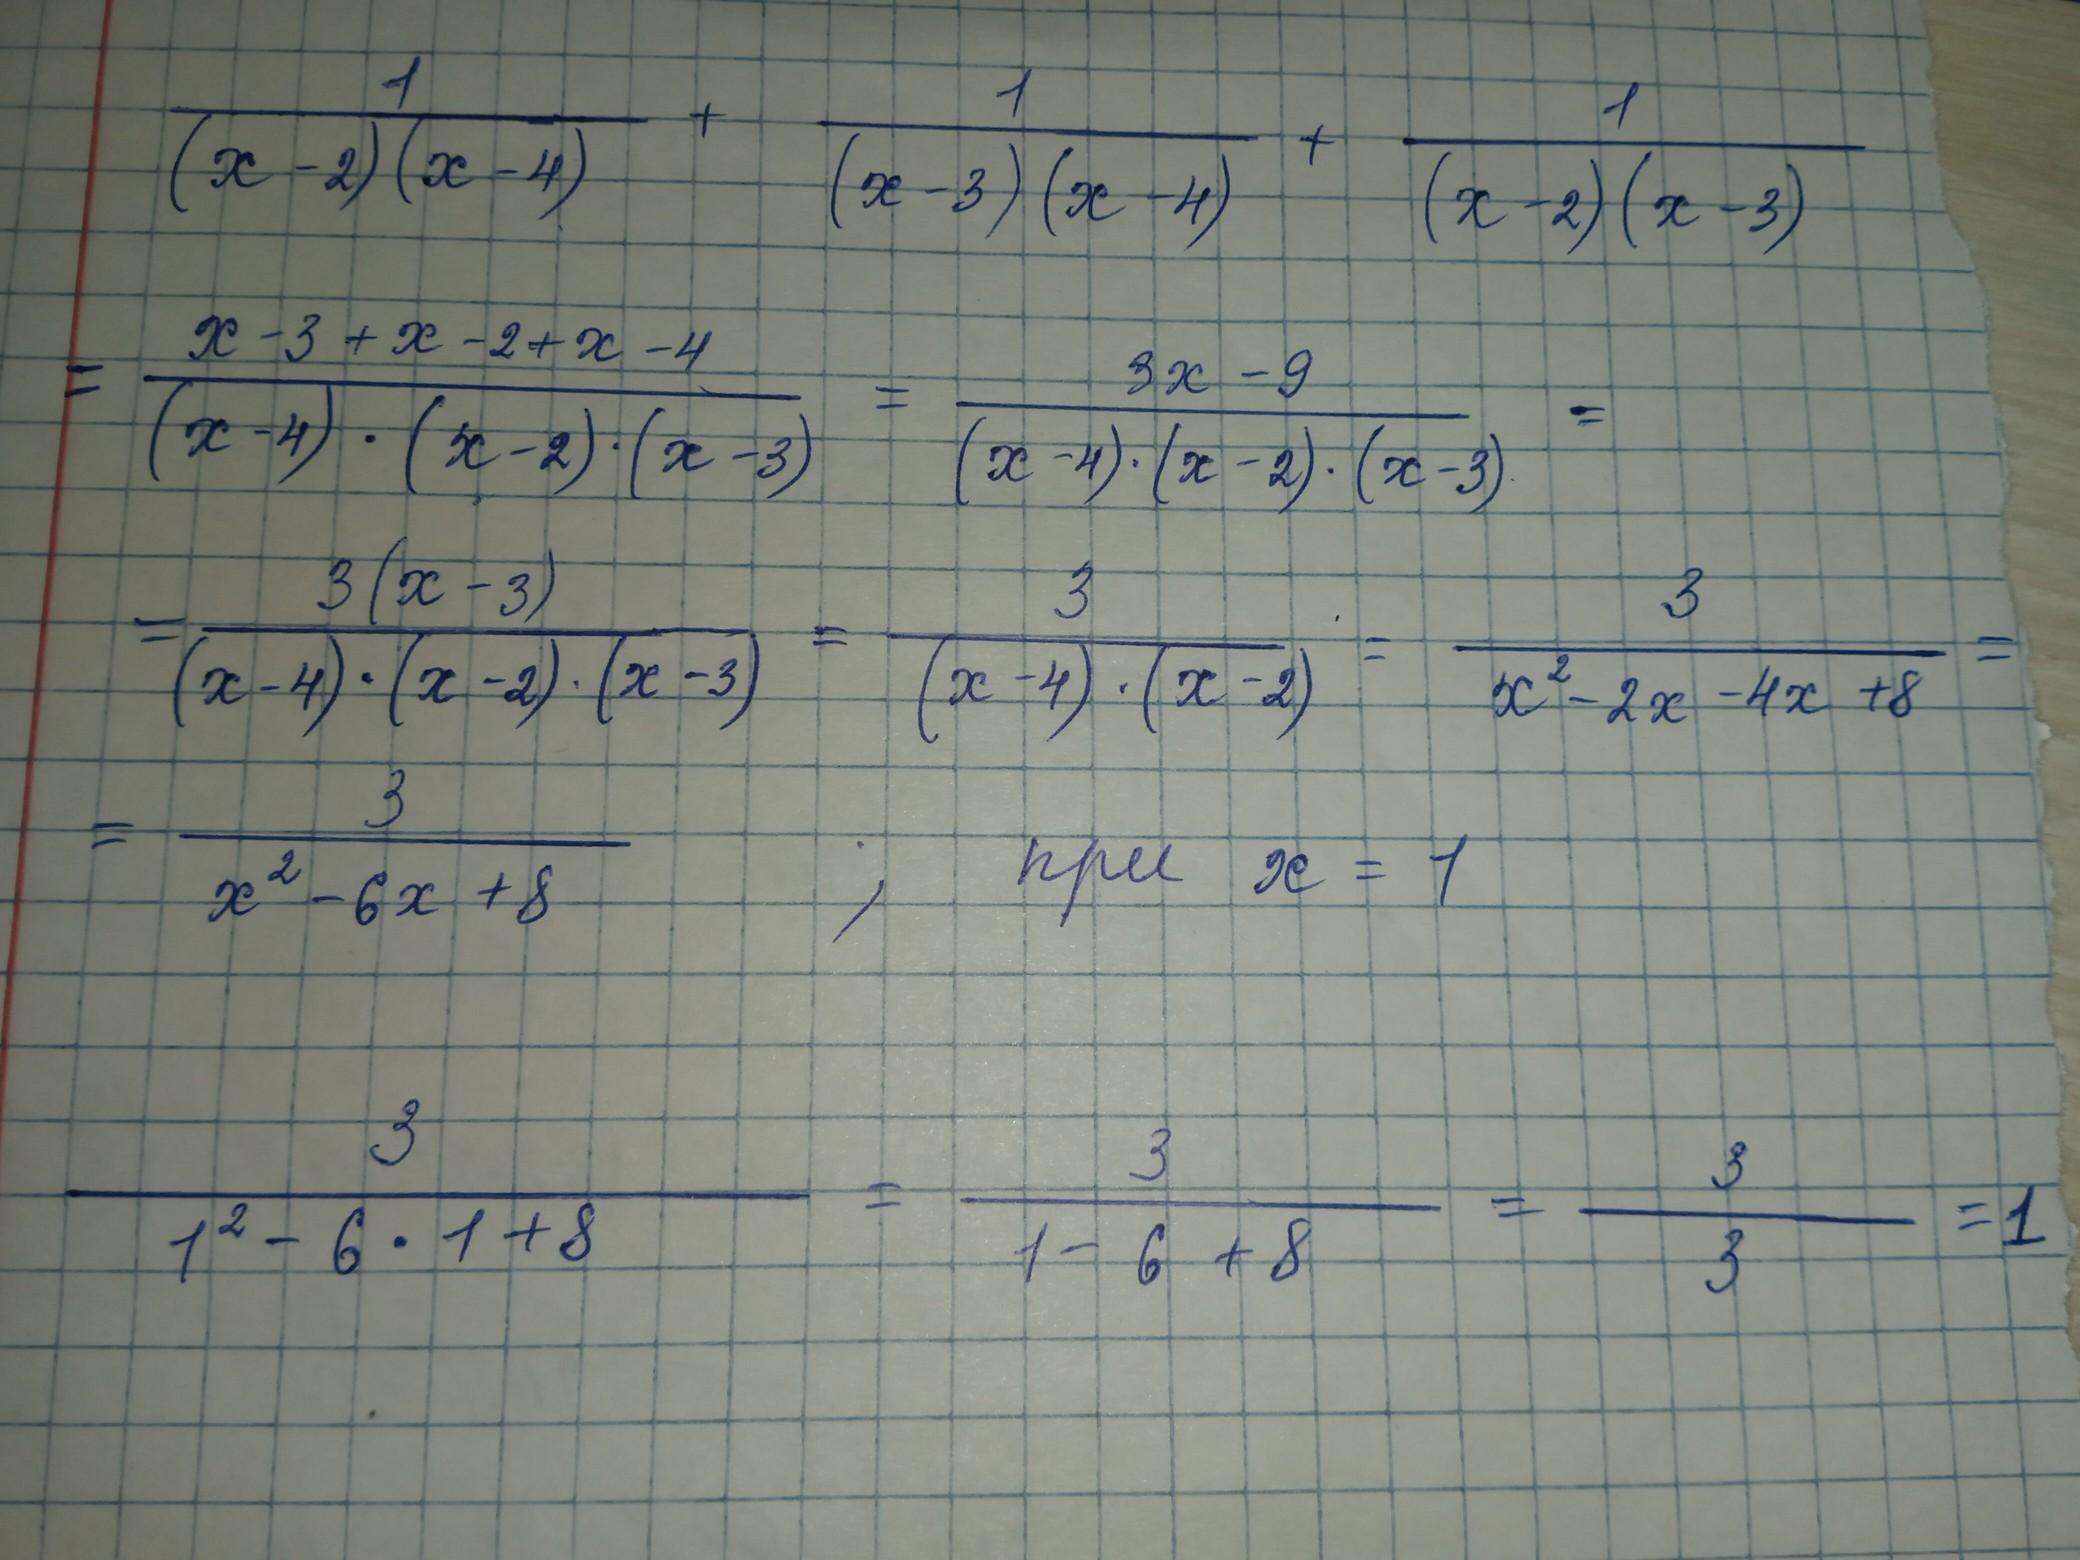 1/((x-2)(x-4)) + 1/((x-3)(x-4)) + 1/((x-2)(x-3))
= (x-3+x-2+x-4)/((x-4)·(x-2)·(x-3)) = (3x-9)/((x-4)·(x-2)·(x-3)) =
= 3(x-3)/((x-4)·(x-2)·(x-3)) = 3/((x-4)·(x-2)) = 3/(x²-2x-4x+8) =
= 3/(x²-6x+8) ; при x = 1
3/(1²-6·1+8) = 3/(1-6+8) = 3/3 = 1